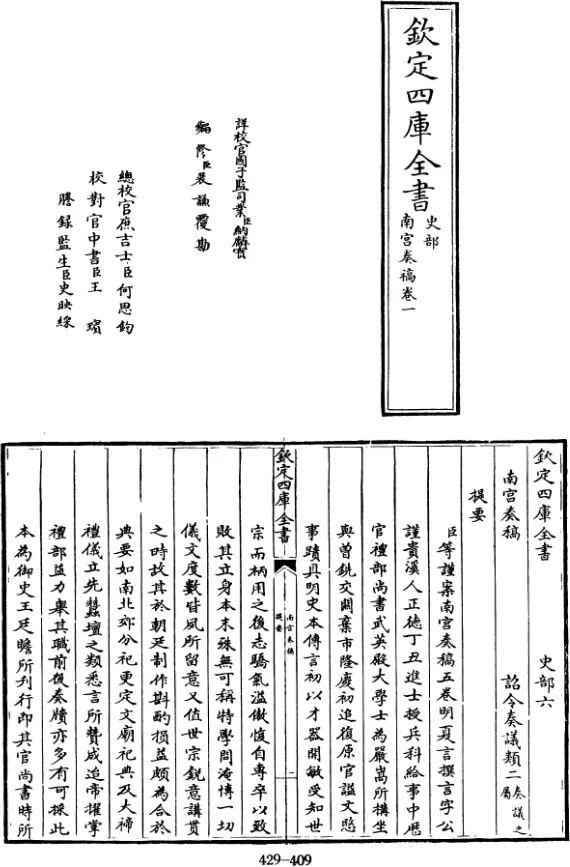 欽定四庫全書
史部
南宮奏稿卷一
詳校官國子監司業臣納麟寶
編修臣裴謙覆勘
總校官庶吉士臣何思鈞
校對官中書臣王璸
謄錄監生臣史映綵
欽定四庫全書 史部六
南宮奏稿 詔令奏議類二奏議之屬
提要
臣等謹案南宮奏稿五卷明夏言撰言字公
謹貴溪人正德丁丑進士授兵科給事中歷
官禮部尚書武英殿大學士為嚴嵩所搆坐
與曾銑交關棄市隆慶初追復原官謚文愍
事蹟具明史本傳言初以才器開敏受知世
欽定四庫全書
南宮奏稿
提要
一
宗而柄用之後志驕氣溢傲愎自專卒以致
敗其立身本末殊無可稱特學問淹博一切
儀文度數皆夙所留意又值世宗銳意講貫
之時故其於朝廷制作斟酌損益頗為合於
典要如南北郊分祀更定文廟祀典及大禘
禮儀立先蠶壇之類悉言所贊成迨帝擢掌
禮部益力舉其職前後奏牘亦多有可採此
本為御史王廷瞻所刋行即其官尚書時所
429-409